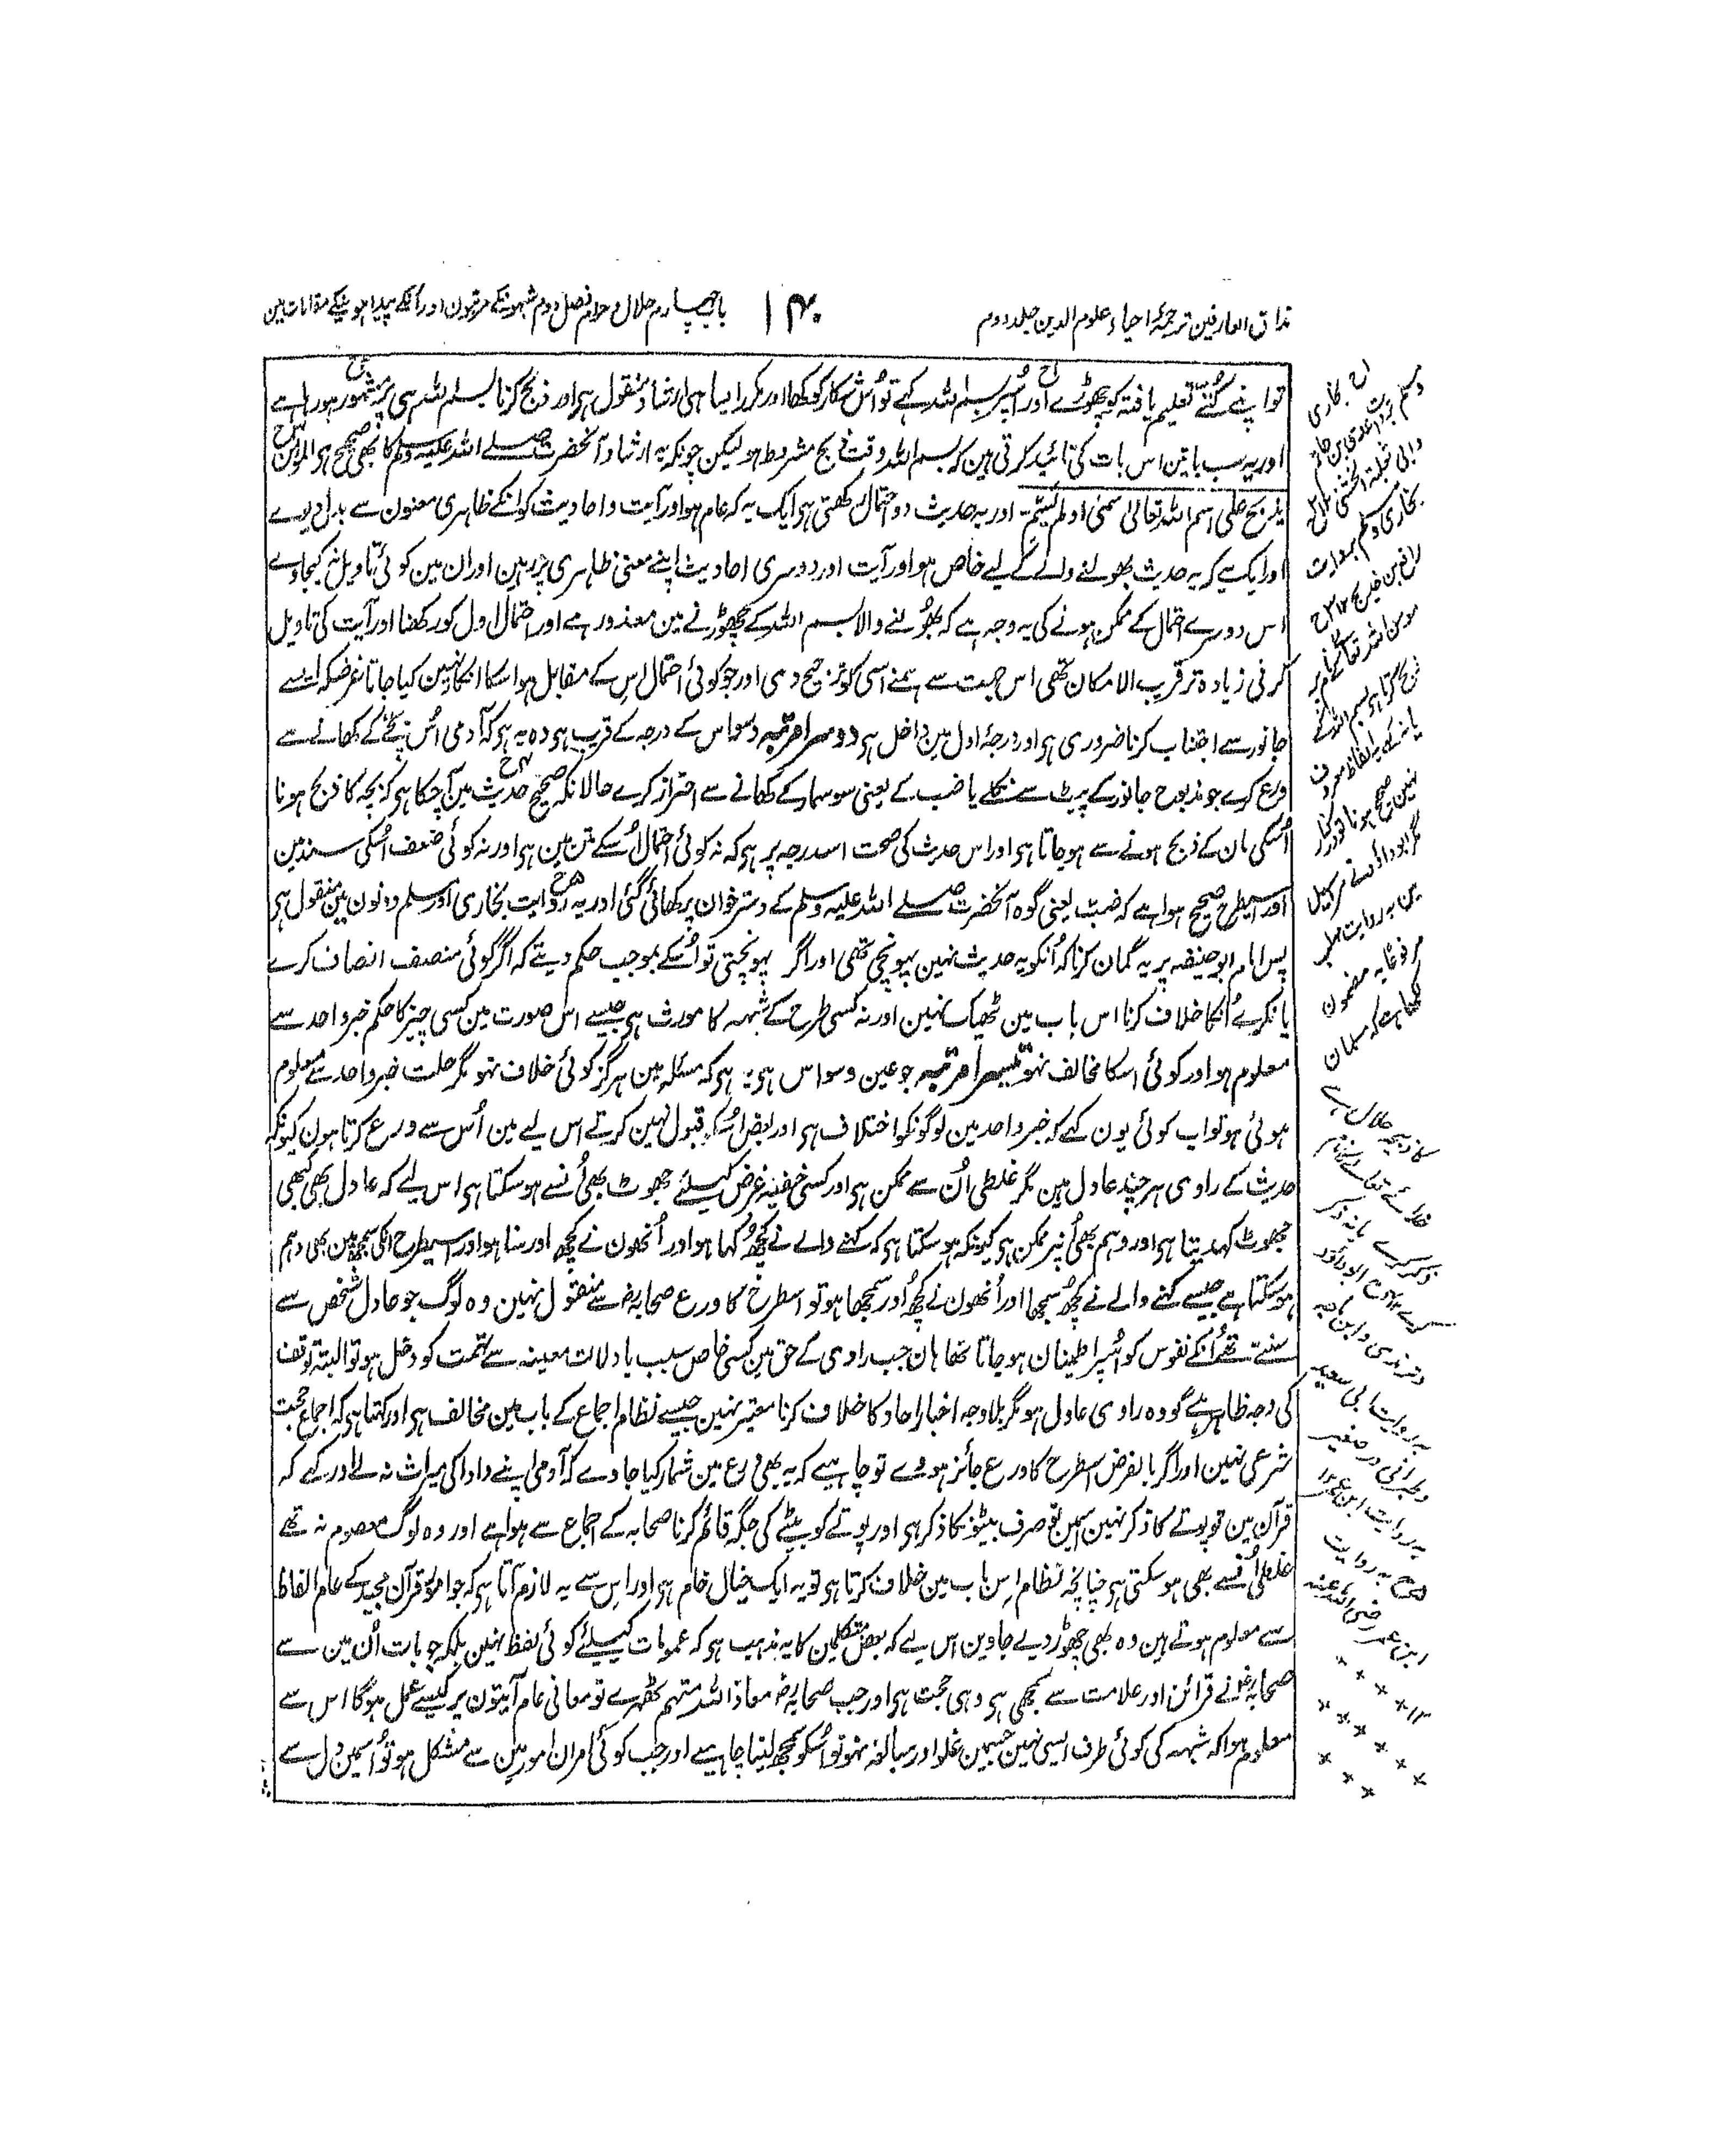 مذاق العارفین ترجمۂ احیاء علوم الدین جلد دوم
۱۴۰
باب چہارم حلال و حرام فصل دوم شبہونکے مرتبون اور اُنکے پیدا ہونیکے مقامات مین
تو اپنے کُتّے تعلیم یافتہ کو چھوڑے اور اُسپر بسم اللہ کہے تو اُس شکار کو کھا اور مکرر ایسا ہی ارشاد منقول ہی اور ذبح کرنا بسم اللہ ہی پر مشہور ہو رہا ہے
اور یہ سب باتین اس بات کی تائید کرتی ہین کہ بسم اللہ وقت ذبح مشروط ہو لیکن چونکہ یہ ارشاد آنحضرت صلے اللہ علیہ وسلم کا بھی صحیح ہو المومن
یذبح علی اسم اللہ تعالیٰ سمی او لم یسم۔ اور یہ حدیث دو احتمال رکھتی ہی ایک یہ کہ عام ہو اور آیت و احادیث کو انکے ظاہری معنون سے بدل دیوے
اور ایک یہ کہ یہ حدیث بھولنے والے کے لیے خاص ہو اور آیت اور دوسری احادیث اپنے معنی ظاہری پر رہین اور ان مین کوئی تاویل نہ کیجاوے
اس دوسرے احتمال کے ممکن ہونے کی یہ وجہ ہے کہ بھولنے والا بسم اللہ کے چھوڑنے مین معذور ہے اور احتمال اول کو رکھنا اور آیت کی تاویل
کرنی زیادہ تر قریب الامکان تھی اس جہت سے ہمنے اسی کو ترجیح دی اور جو کوئی احتمال اس کے مقابل ہو اسکا انکار نہین کیا جاتا غرضکہ ایسے
جانور سے اجتناب کرنا ضروری ہی اور درجۂ اول مین داخل ہی دوسرا مرتبہ وسواس کے درجہ کے قریب ہی وہ یہ ہی کہ آدمی اُس بچے کے کھانے سے
ورع کرے جو مذبوح جانور کے پیٹ سے نکلے یا ضب کے یعنی سوسمار کے کھانے سے احتراز کرے حالانکہ صحیح حدیث مین آچکا ہی کہ بچہ کا ذبح ہونا
اُسکی مان کے ذبح ہونے سے ہو جاتا ہی اور اس حدیث کی صحت اسدرجہ پر ہی کہ نہ کوئی احتمال اُسکے متن مین ہی اور نہ کوئی ضعف اُسکی سند مین
اور اسیطرح صحیح ہوا ہے کہ ضب یعنی گوہ آنحضرت صلے اللہ علیہ وسلم کے دسترخوان پر کھائی گئی اور یہ روایت بخاری اور مسلم دونون مین منقول ہی
پس امام ابو حنیفہ پر یہ گمان کرنا کہ اُنکو یہ حدیث نہین پہونچی تھی اور اگر پہونچتی تو اُسکے بموجب حکم دیتے کہ اگر کوئی منصف انصاف کرے
یا نکرے اُنکا خلاف کرنا اس باب مین ٹھیک نہین اور نہ کسی طرح کے شبہہ کا مورث ہی جیسے اس صورت مین کسی چیز کا حکم خبر واحد سے
معلوم ہو اور کوئی اسکا مخالف نہو تیسرا مرتبہ جو عین وسواس ہی یہ ہی کہ مسئلہ مین ہرگز کوئی خلاف نہو مگر حلت خبر واحد سے معلوم
ہوئی ہو تو اب کوئی یون کہے کہ خبر واحد مین لوگونکو اختلاف ہی اور بعض اُسکو قبول نہین کرتے اس لیے مین اُس سے ورع کرتا ہون کیونکہ
حدیث کے راوی ہرچند عادل ہین مگر غلطی اُن سے ممکن ہی اور کسی خفیہ غرض کیلئے جھوٹ بھی اُنسے ہو سکتا ہی اس لیے کہ عادل بھی کبھی
جھوٹ کہدیتا ہی اور وہم بھی اُنپر ممکن ہی کیونکہ ہو سکتا ہی کہ کہنے والے نے کچھ کہا ہو اور اُنھون نے کچھ اور سنا ہو اور اسیطرح انکی سمجھ مین بھی وہم
ہو سکتا ہے جیسے کہنے والے نے کچھ سمجھا اور اُنھون نے کچھ اور سمجھا ہو تو اسطرح کا ورع صحابہ رض سے منقول نہین وہ لوگ جو عادل شخص سے
سنتے تھے اُنکے نفوس کو اُسپر اطمینان ہو جاتا تھا ہان جب راوی کے حق مین کسی خاص سبب یا دلالت معینہ سے تہمت کو دخل ہو تو البتہ توقف
کی وجہ ظاہر ہے گو وہ راوی عادل ہو مگر بلا وجہ اخبار احاد کا خلاف کرنا معتبر نہین جیسے نظام اجماع کے باب مین مخالف ہی اور کہتا ہی کہ اجماع حجت
شرعی نہین اور اگر بالفرض اسطرح کا ورع جائز ہووے تو چاہیے کہ یہ بھی ورع مین شمار کیا جاوے کہ آدمی اپنے دادا کی میراث نہ لے اور کہے کہ
قرآن مین تو پوتے کا ذکر نہین اسمین تو صرف بیٹونکا ذکر ہی اور پوتے کو بیٹے کی جگہ قائم کرنا صحابہ کے اجماع سے ہوا ہے اور وہ لوگ معصوم نہ تھے
غلطی اُنسے بھی ہو سکتی ہی چنانچہ نظام اس باب مین خلاف کرتا ہی تو یہ ایک خیال خام ہی اور اس سے یہ لازم آتا ہی کہ جو امور قرآن مجید کے عام الفاظ
سے معلوم ہوتے ہین وہ بھی چھوڑ دیے جاوین اس لیے کہ بعض متکلمین کا یہ مذہب ہی کہ عمومات کیلئے کوئی لفظ نہین بلکہ جو بات اُن مین سے
صحابہ رض نے قرائن اور علامت سے سمجھی ہی وہی حجت ہی اور جب صحابہ رض معاذ اللہ متہم ٹھہرے تو معانی عام آیتون پر کیسے عمل ہوگا اس سے
معلوم ہوا کہ شبہہ کی کوئی طرف ایسی نہین جسمین غلو اور مبالغہ نہو تو اُسکو سمجھ لینا چاہیے اور جب کوئی امر ان امور مین سے مشکل ہو تو اُسمین دل سے
بخاری
بخاری و مسلم بروایت
رافع بن خدیج ۱۲
مومن اللہ تعالےٰ کے نام پر
ذبح کرتا ہو بسم اللہ کہے
یا نہ کہے یہ الفاظ معروف
نہین صحیح ہونا تو درکنار
مگر ابوداؤد نے مراسیل
مین بہ روایت صلت
مرفوعاً یہ مضمون
لکھا ہے کہ مسلمان
کا ذبیحہ حلال ہے
ذکر کرے یا نہ ذکر
کرے ابوداؤد
و ترمذی و ابن ماجہ
بہ روایت ابی سعید
و طبرانی در صغیر
بہ روایت ابن عمر
بہ روایت
ابن عمر رضی اللہ عنہ
۱۲